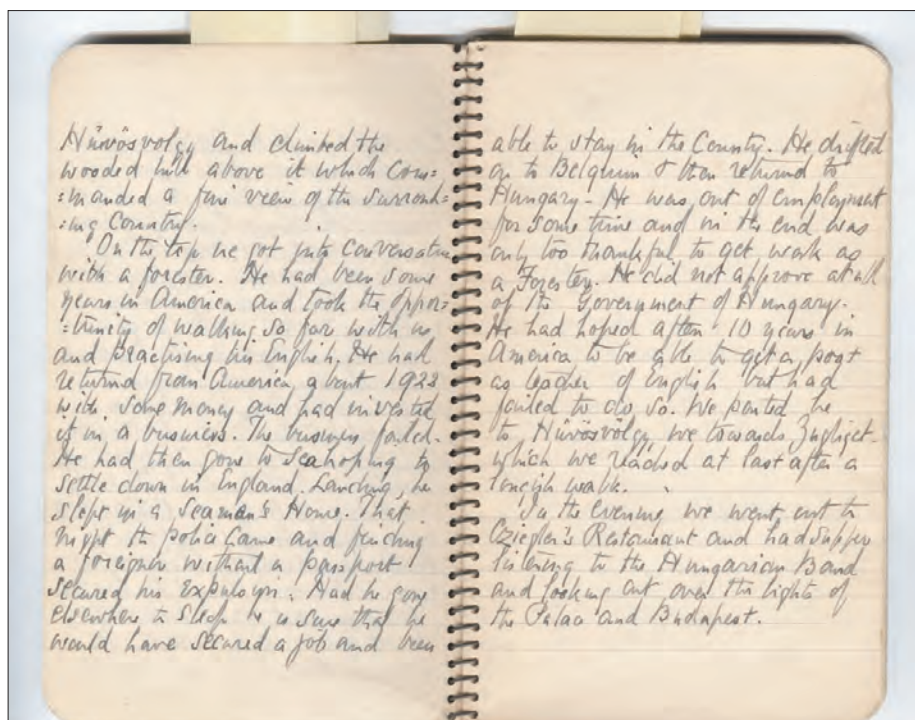 Hüvösvolgy and climbed the
wooded hill above it which com=
=manded a fine view of the surround=
=ing Country.
On the top we got into conversation
with a forester. He had been some
years in America and took the oppor=
=tunity of walking so far with us
and practising his English. He had
returned from America about 1922
with some money and had invested
it in a business. The business failed.
He had then gone to sea hoping to
settle down in England. Landing, he
slept in a Seaman's Home. That
night the police came and finding
a foreigner without a passport
secured his expulsion. Had he gone
elsewhere to sleep he is sure that he
would have secured a job and been
able to stay in the Country. He drifted
on to Belgium & then returned to
Hungary - He was out of employment
for some time and in the end was
only too thankful to get work as
a Forester. He did not approve at all
of the Government of Hungary.
He had hoped after 10 years in
America to be able to get a post
as teacher of English but had
failed to do so. We parted he
to Hüvösvölgy we towards Zugliget
which we reached at last after a
longish walk.
In the evening we went out to
Cziegler's Restaurant and had supper
listening to the Hungarian Band
and looking out over the lights of
the Palace and Budapest.